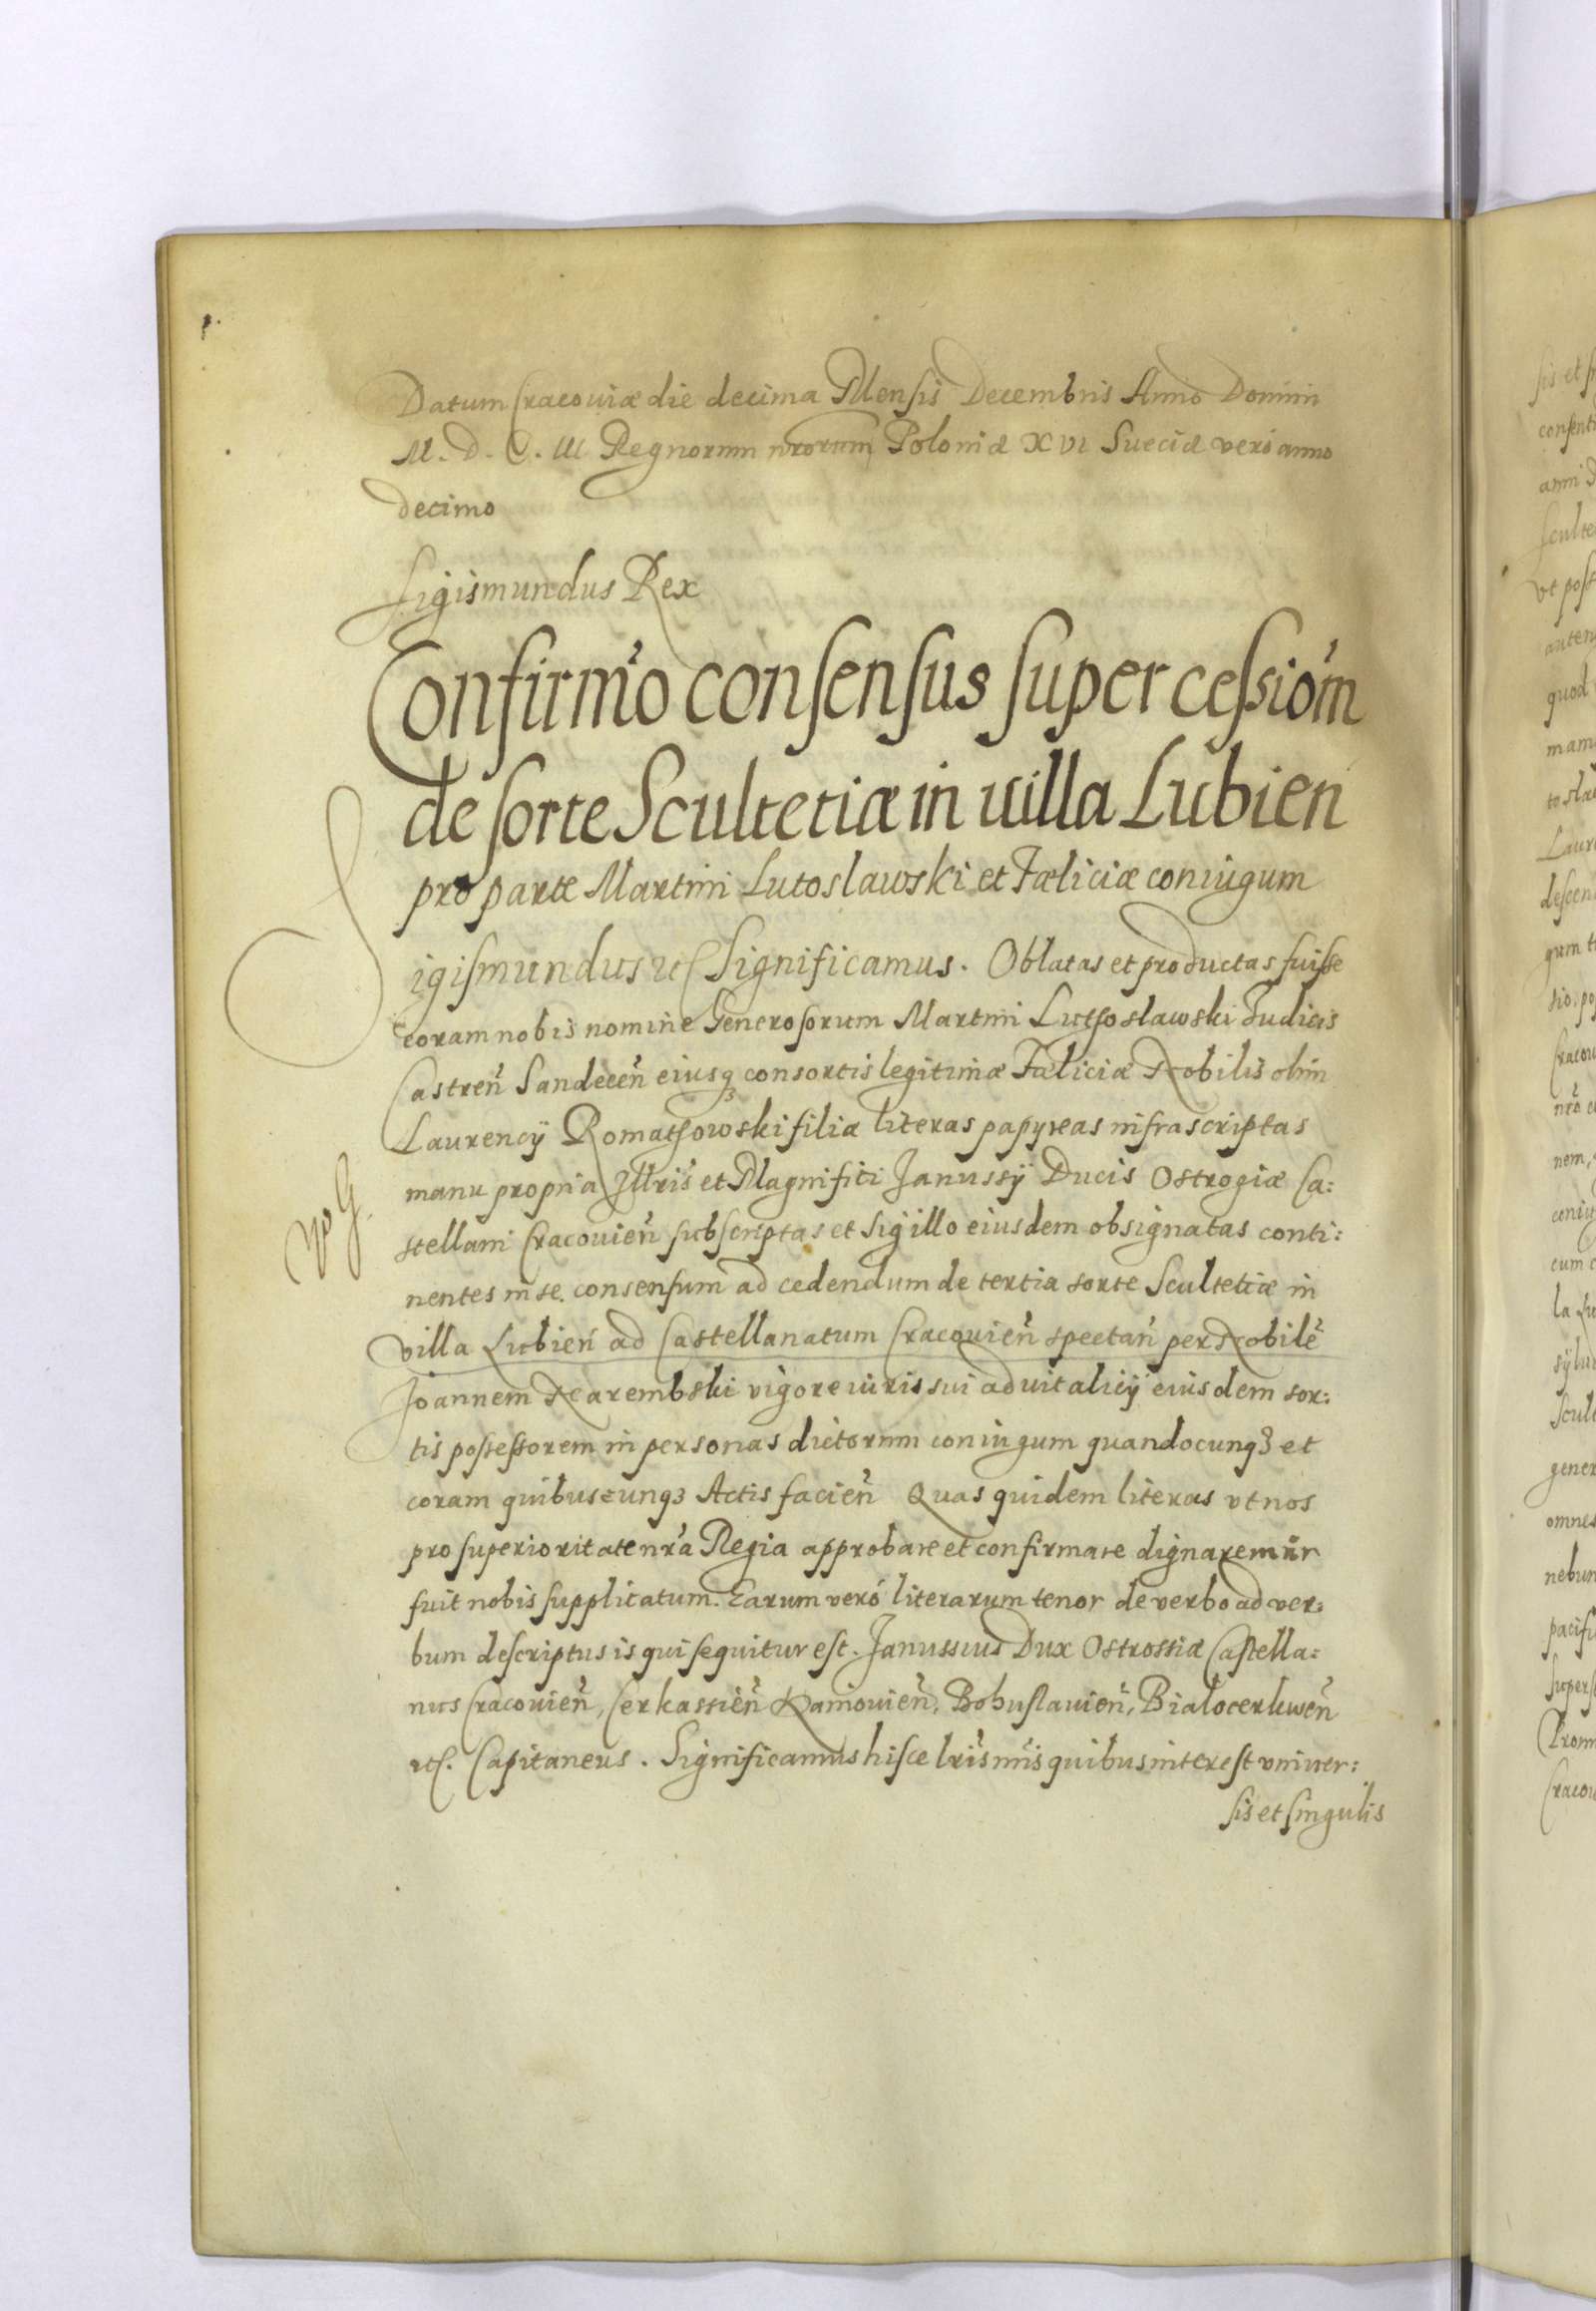 Datum Cracoviæ die decima Mensis Decembris Anno Domini
M. D. C. III. Regnorum nrorum Poloniæ XVI Sueciæ verò anno
decimo
Sigismundus Rex
Confirm̃o consensus super cessiom̃
de sorte Scultetiæ in villa Lubien
pro parte Martini Lutoslawski et Fæliciæ coniugum
Sigismundus etc Significamus. Oblatas et productas fuisse
coram nobis nomine Generosorum Martini Luthoslawski Judicis
Castreñ Sandeceñ eiusq3 consortis legitimæ Fæliciæ Nobilis olim
Laurencÿ Romathowski filiæ literas papyreas infrascriptas
manu propria Illris et Magnifici Janussÿ Ducis Ostrogiæ Ca:
stellani Cracovieñ subscriptas et sigillo eiusdem obsignatas conti:
nentes in se consensum ad cedendum de tertia sorte Scultetiæ in
villa Lubień ad Castellanatum Cracovieñ spectań per Nobilẽ
Joannem Zarembski vigore iuris sui aduitalicÿ eiusdem sor:
tis possessorem in personas dictorum coniugum quandocunq3 et
coram quibuscunq3 Actis facieñ Quas quidem literas vt nos
pro superioritate nr̃a Regia approbare et confirmare dignaremur
fuit nobis supplicatum. Earum verò literarum tenor de verbo ad ver:
bum descriptus is qui sequitur est. Janussius Dux Ostrossiæ Castella:
nus Cracovieñ, Cerkassieñ Kaniovieñ, Bohuslavieñ, Bialocerkweñ
etc. Capitaneus. Significamus hisce lris̃ nris̃ quibus interest vniver:
sis et singulis